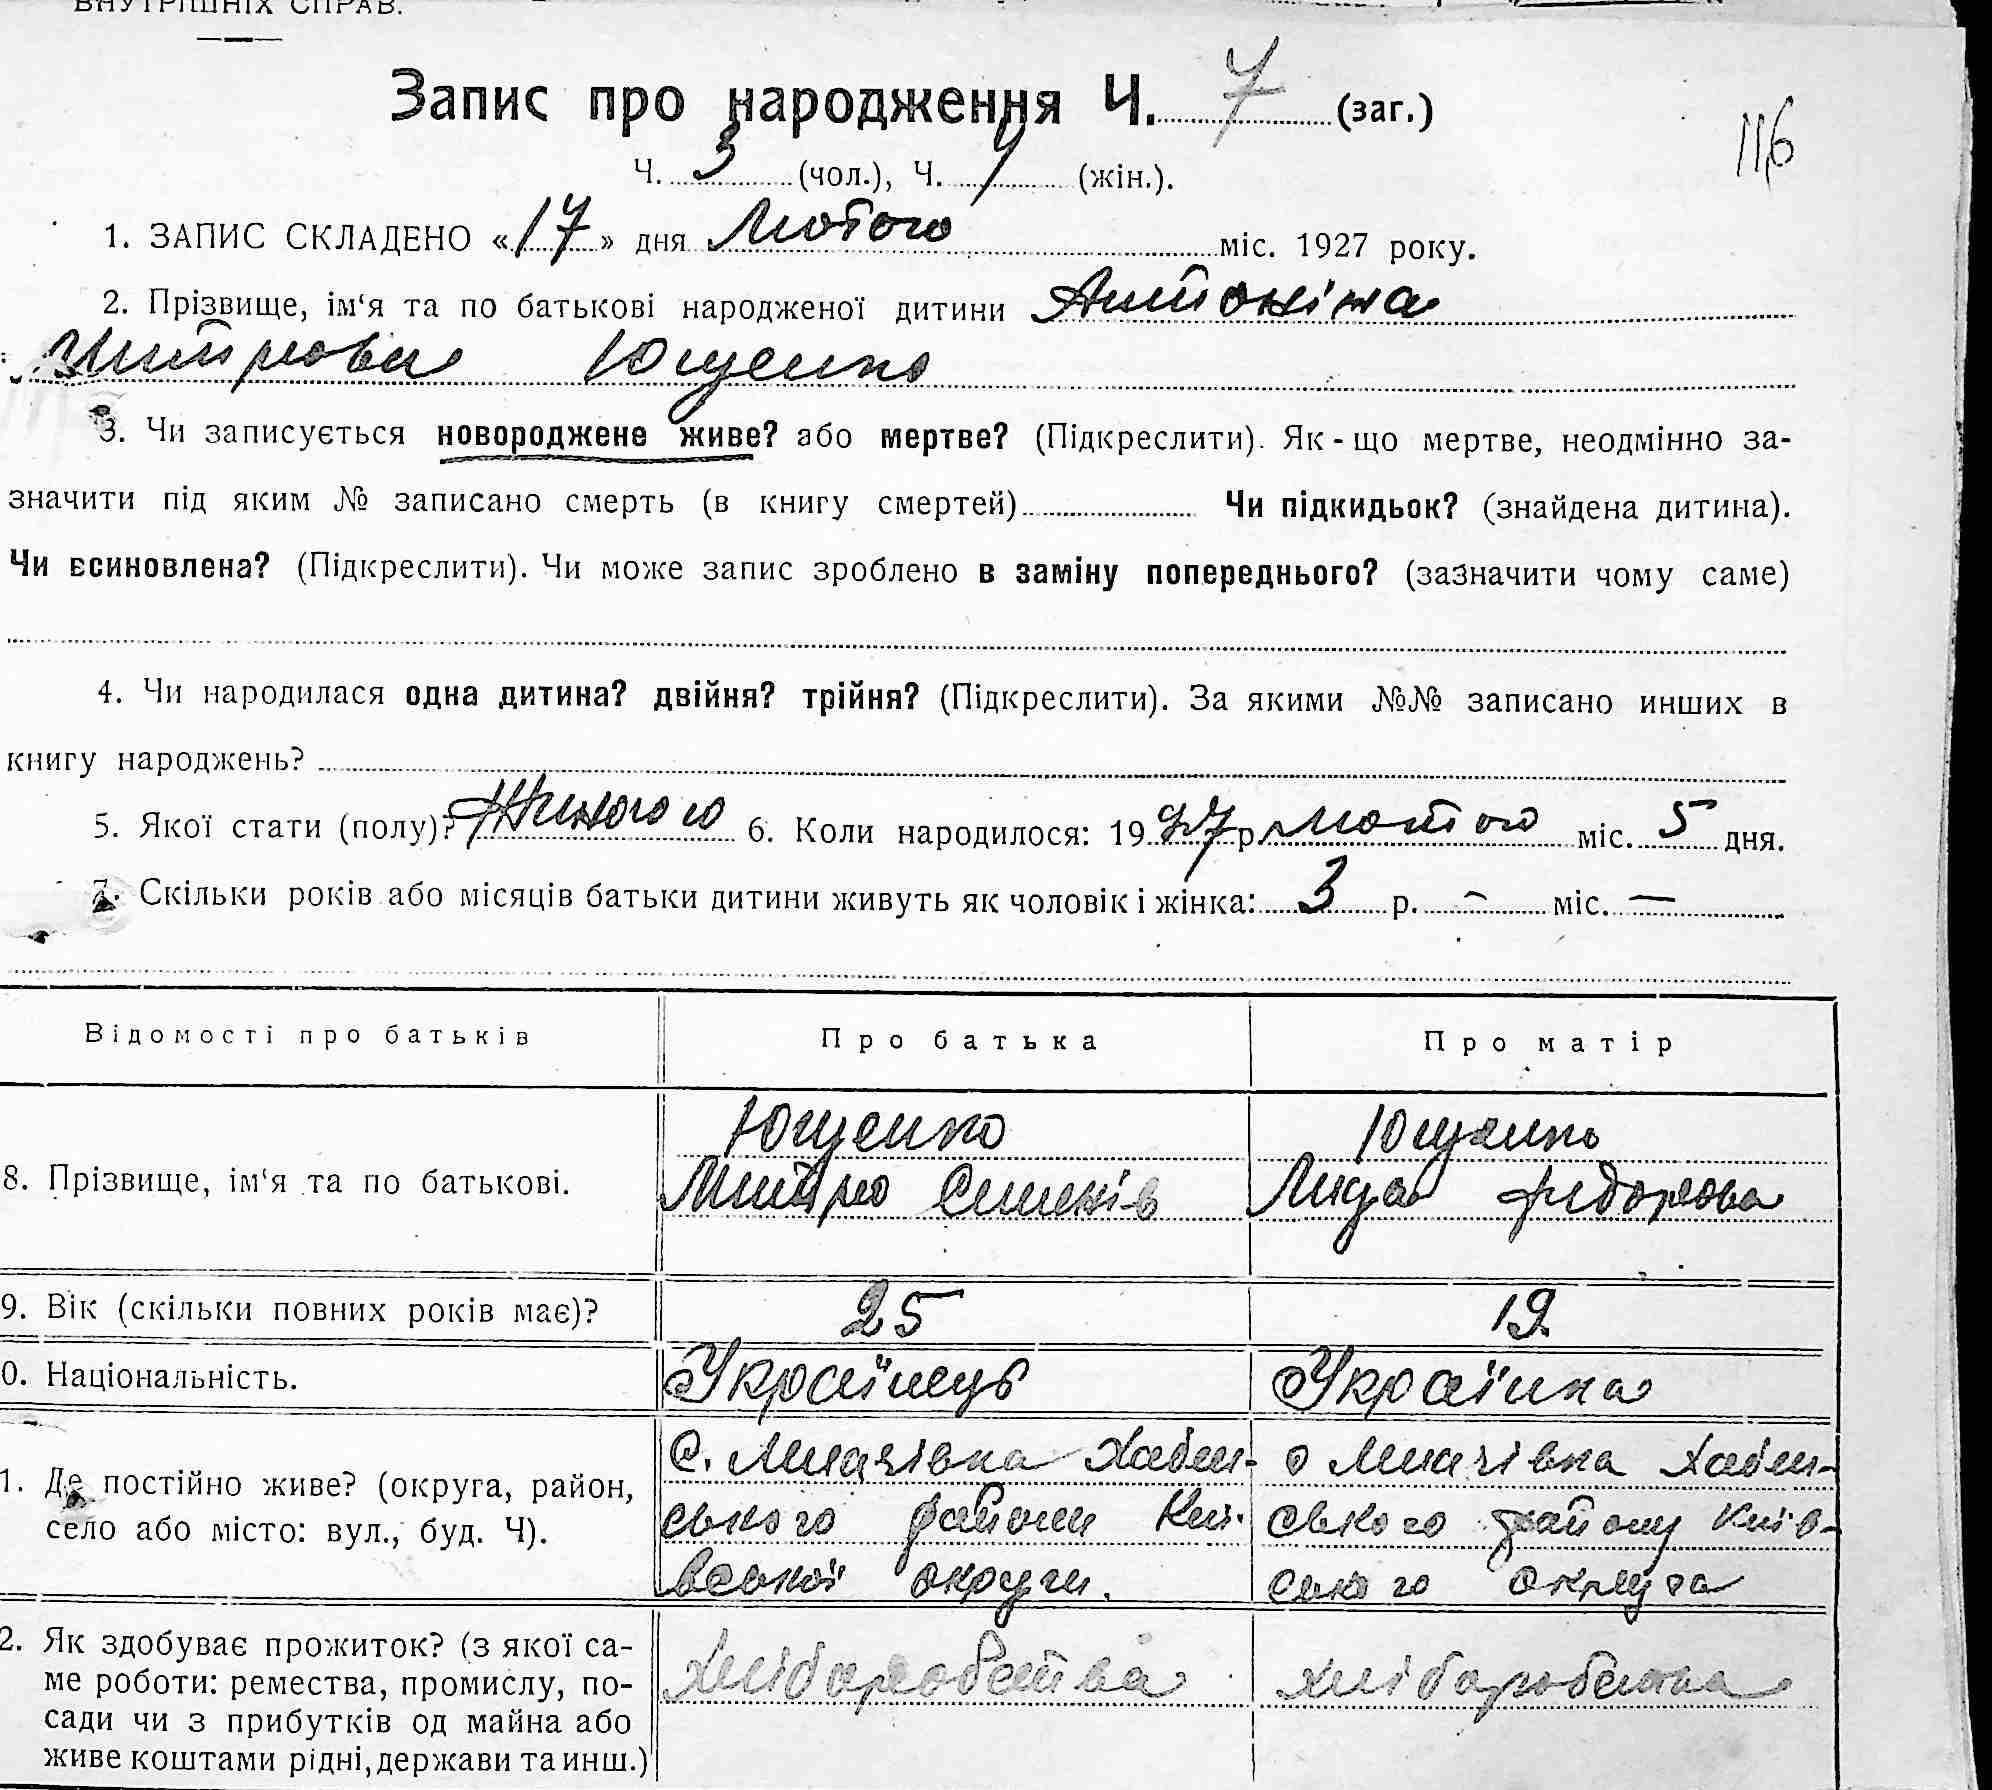 ВНУТРІШНІХ СПРАВ.
Запис про народження Ч. 7 (заг.)
116
Ч. 3 (чол.), Ч. (жін.).
1. ЗАПИС СКЛАДЕНО «17» дня Лютого міс. 1927 року.
2. Прізвище, ім‘я та по батькові народженої дитини Антоніна
Митрова Ющенко
3. Чи записується новороджене живе? або мертве? (Підкреслити). Як-що мертве, неодмінно за-
значити під яким № записано смерть (в книгу смертей) Чи підкидьок? (знайдена дитина).
Чи всиновлена? (Підкреслити). Чи може запис зроблено в заміну попереднього? (зазначити чому саме)
4. Чи народилася одна дитина? двійня? трійня? (Підкреслити). За якими №№ записано инших в
книгу народжень?
5. Якої стати (полу)? 6. Коли народилося: 1927 р. лютого міс. 5 дня.
7. Скільки років або місяців батьки дитини живуть як чоловік і жінка: 3 р. — міс. —
Відомості про батьків Про батька Про матір
8. Прізвище, ім‘я та по батькові. Ющенко Ющенко
Митро Семенів Лида Федорова
9. Вік (скільки повних років має)? 25 19
0. Національність. Українець Українка
1. Де постійно живе? (округа, район, село або місто: вул., буд. Ч).
с. Хабен-
ського району Киї-
вської округи.
с Хабен-
ського району Київ-
ського округа
2. Як здобуває прожиток? (з якої са-
ме роботи: ремества, промислу, по-
сади чи з прибутків од майна або
живе коштами рідні, держави та инш.)
Хліборобства хліборобства